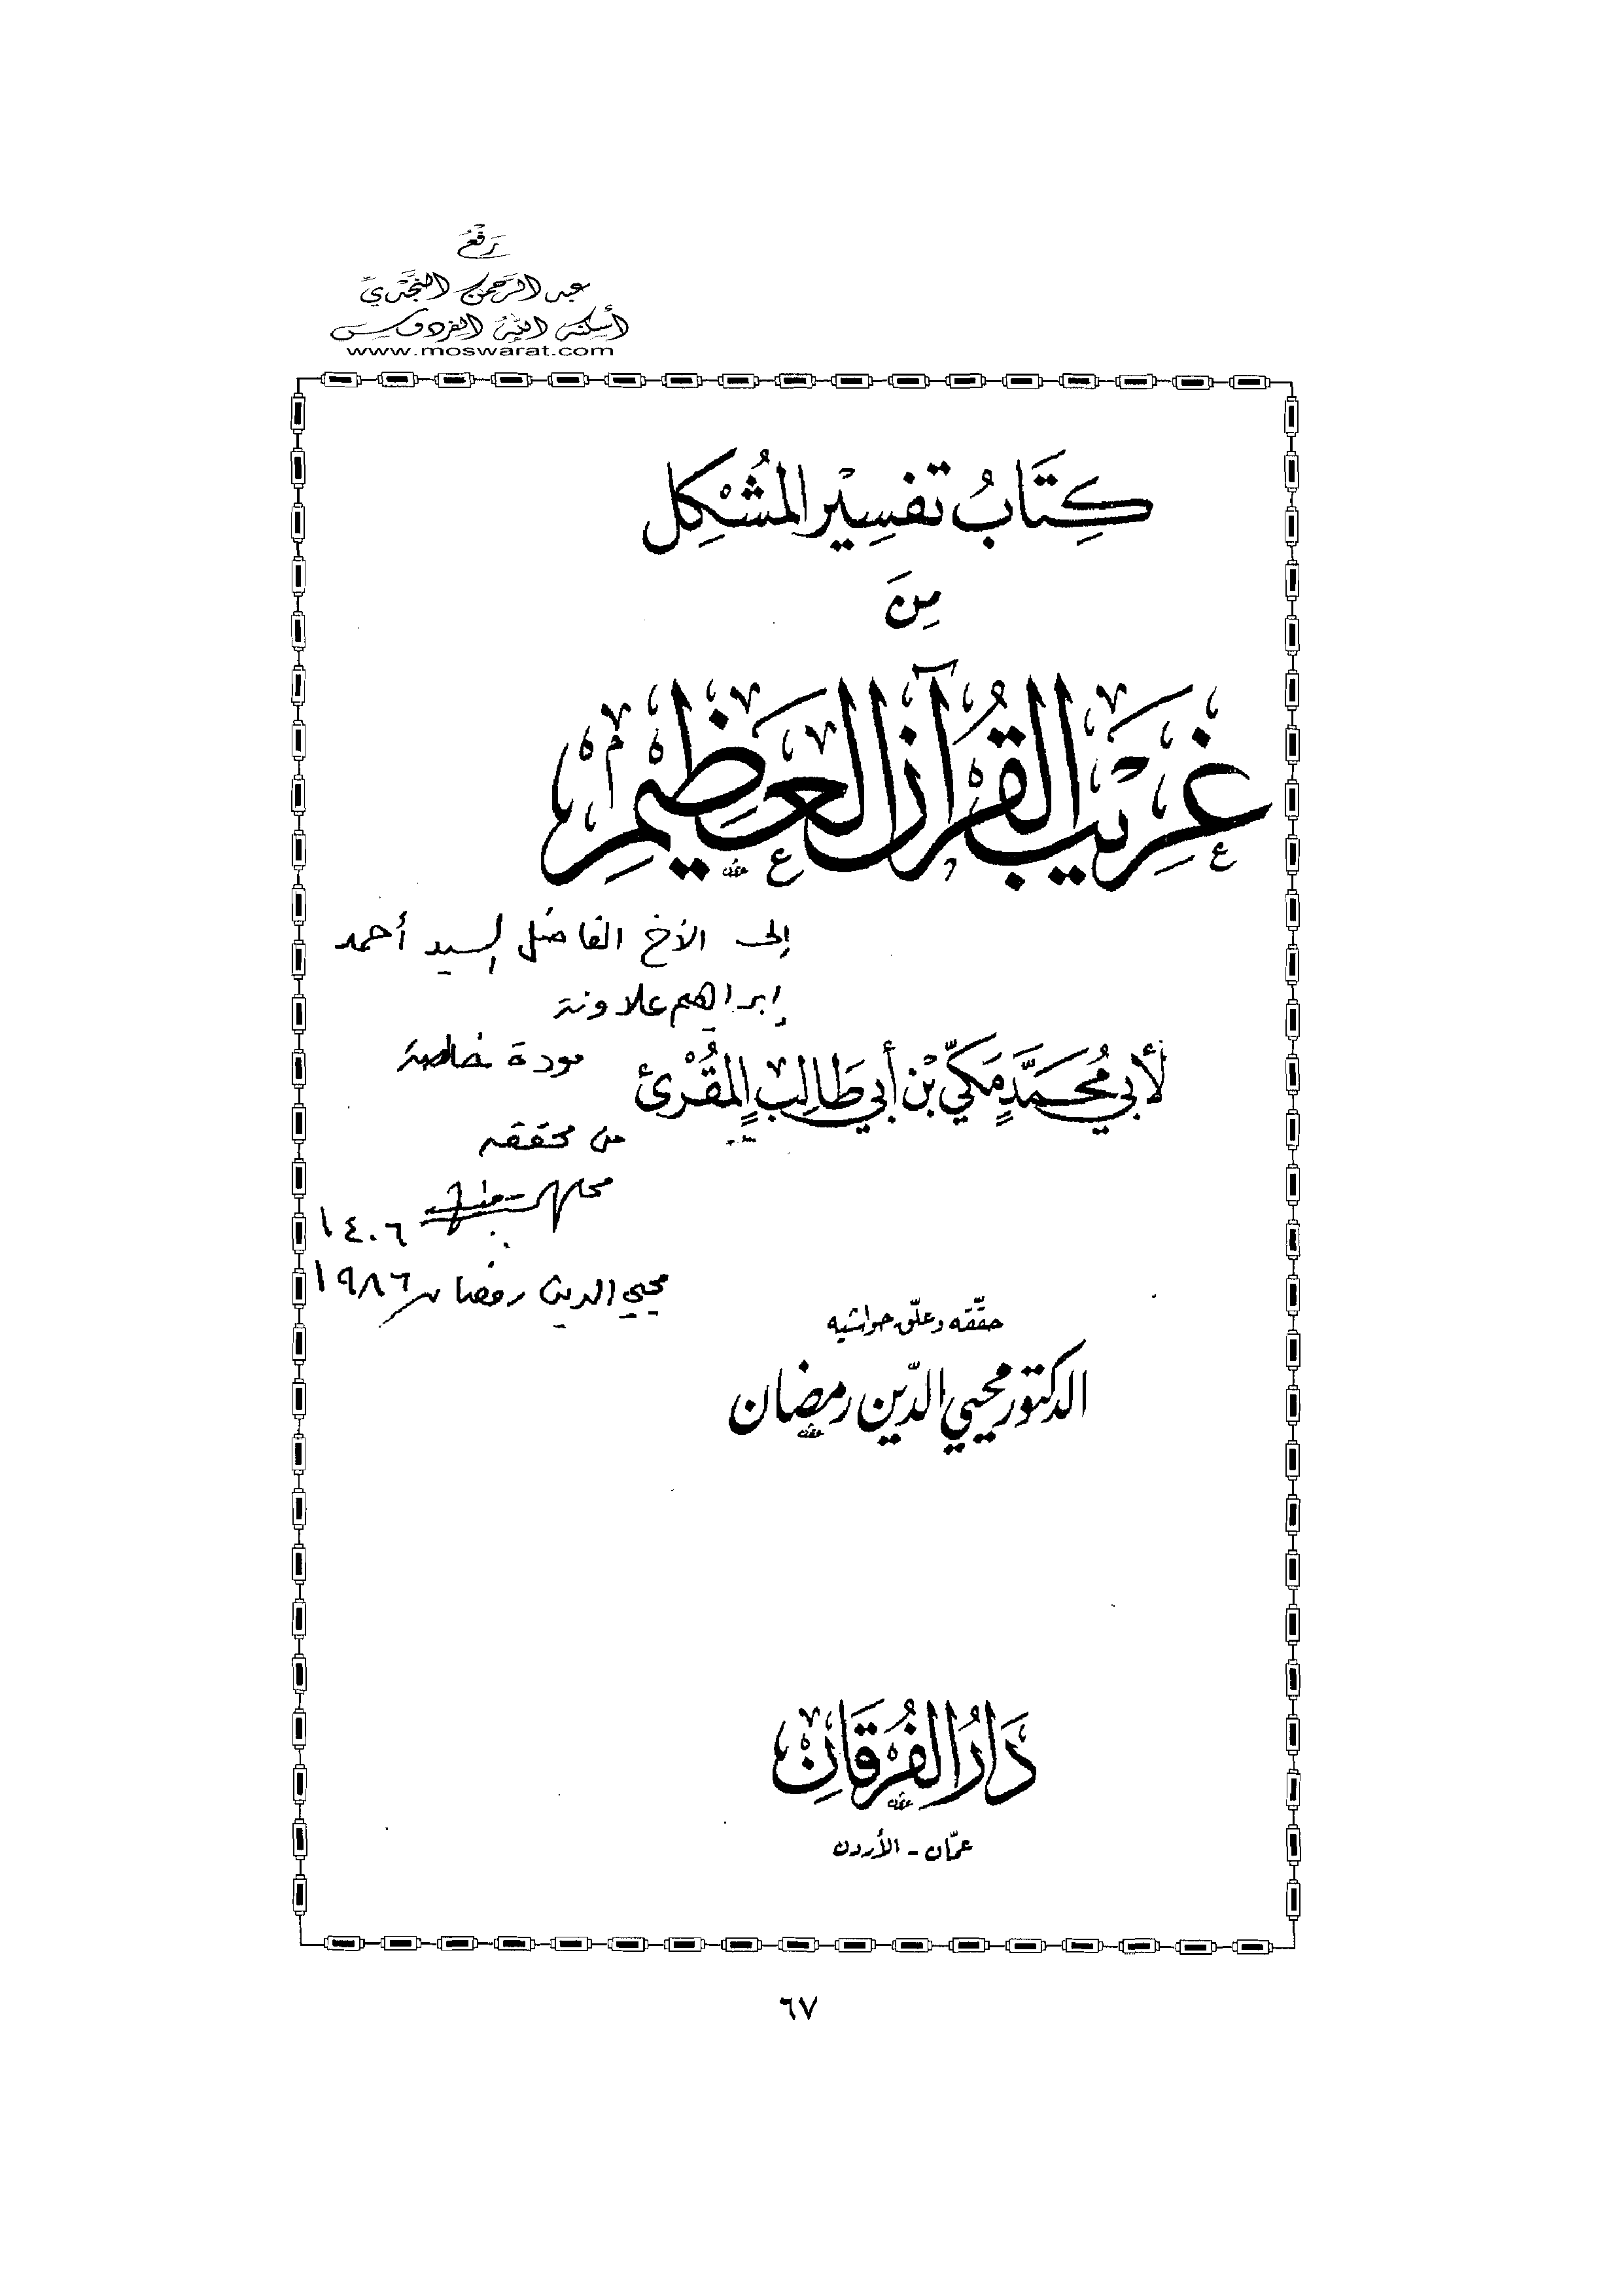 رَفْعُ
عبد الرحمن النجدي
أسكنه الله الفردوس
www.moswarat.com
كِتَابُ تفسِيْر المُشْكِل
مِنَ
غَرِيْبِ القُرآنِ العَظِيمِ
إلى الأخ الفاضل السيد أحمد
إبراهيم علاونة
مودة خالصة
لأبي مُحمَّدٍ مَكيّ بْن أبي طَالِبٍ المُقْرئ
من محققه
١٤٠٦
محيي الدين رمضان ١٩٨٦
حقّقه وعلّق حواشيه
الدكتور محيي الدّين رمضان
دَارُ الفُرقَانِ
عمّان - الأردن
٦٧